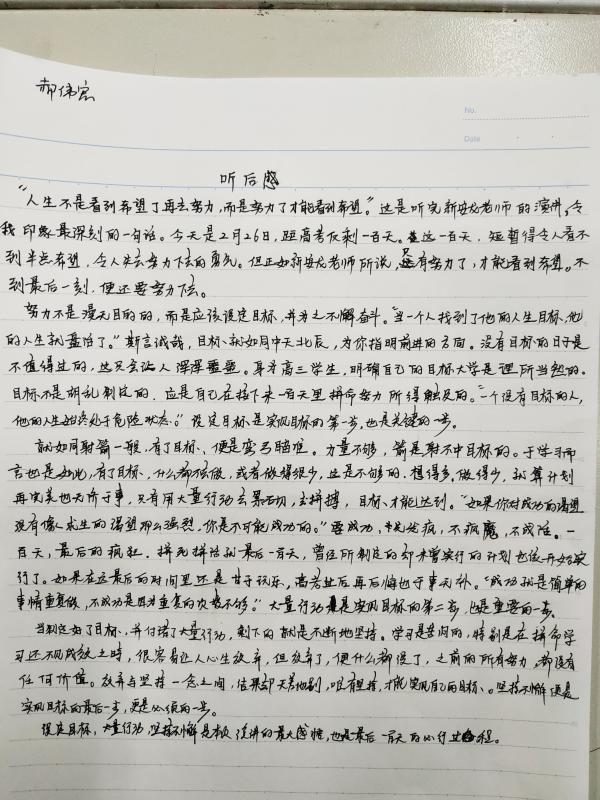 郝伟宏
No.
Date
听后感
"人生不是看到希望了再去努力,而是努力了才能看到希望。"这是听完靳安龙老师的演讲,令
我印象最深刻的一句话。今天是2月26日,距高考仅剩一百天。这一百天,短暂得令人看不
到半点希望,令人失去努力下去的勇气。但正如靳安龙老师所说,只有努力了,才能看到希望。不
到最后一刻,便还要努力下去。
努力不是漫无目的的,而是应该设定目标,并为之不懈奋斗。"当一个人找到了他的人生目标,他
的人生就开始了。"斯言诚哉,目标就如同中天北辰,为你指明前进的方向。没有目标的日子是
不值得过的,这只会让人浑浑噩噩。身为高三学生,明确自己的目标大学是理所当然的。
目标不是胡乱制定的,应是自己在接下来一百天里拼命努力所得触及的。"一个没有目标的人,
他的人生始终处于危险状态。"设定目标是实现目标的第一步,也是关键的一步。
就如同射箭一般,有了目标,便是弯弓瞄准。力量不够,箭是射不中目标的。于学习而
言也是如此,有了目标,什么都不做,或者做得很少,这是不够的。想得多,做得少,就算计划
再完美也无济于事,只有用大量行动去 去拼搏,目标才能达到。"如果你对成功的渴望
没有像人求生的渴望那么强烈,你是不可能成功的。"要成功,先发疯,不疯魔,不成活。一
百天,最后的疯狂。拼死拼活就最后一百天,曾经所制定的却未曾实行的计划也该开始实
行了。如果在这最后的时间里还是甘于玩乐,高考过后再后悔也于事无补。"成功就是简单的
事情重复做,不成功是因为重复的次数不够。"大量行动是实现目标的第二步,也是重要的一步。
当制定好了目标,并付诸了大量行动,剩下的就是不断地坚持。学习是苦闷的,特别是在拼命学
习还不见成效之时,很容易让人心生放弃,但放弃了,便什么都没了,之前的所有努力,都没有
任何价值。放弃与坚持一念之间,结果却天差地别,唯有坚持,才能实现自己的目标。坚持不懈便是
实现目标的最后一步,更是必须的一步。
设定目标,大量行动,坚持不懈是本次演讲的最大感悟,也是最后一百天的必行过程。